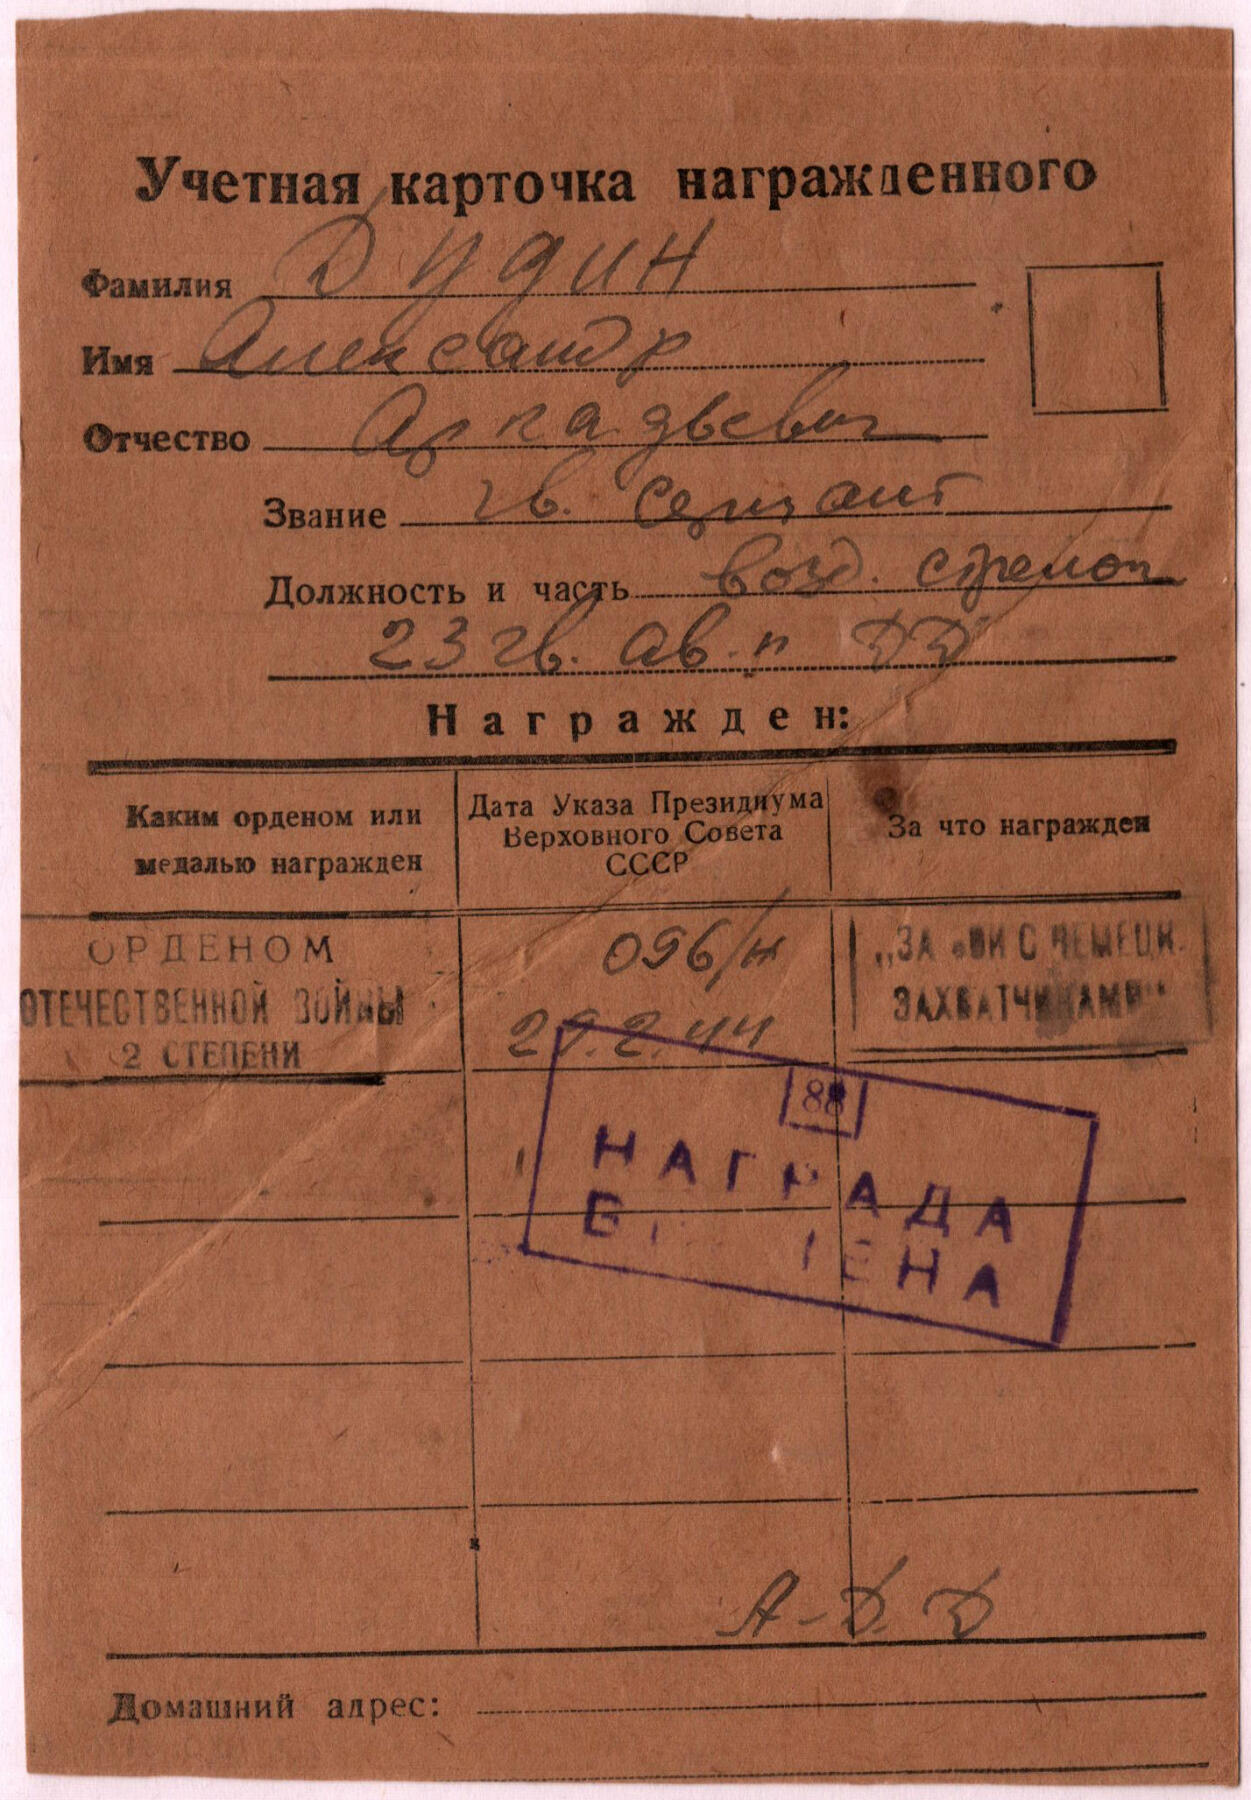 Учетная карточка награжденного
Фамилия Дудин
Имя Александр
Отчество Аркадьевич
Звание гв. сержант
Должность и часть возд. стрелок
23 гв. ав. п ДД
Награжден:
Каким орденом или
медалью награжден
Дата Указа Президиума
Верховного Совета
СССР
За что награжден
ОРДЕНОМ
ОТЕЧЕСТВЕННОЙ ВОЙНЫ
2 СТЕПЕНИ
096/н
29.2.44
„ЗА БОИ С НЕМЕЦК.
ЗАХВАТЧИКАМИ"
88
НАГРАДА
А-Д Д
Домашний адрес: